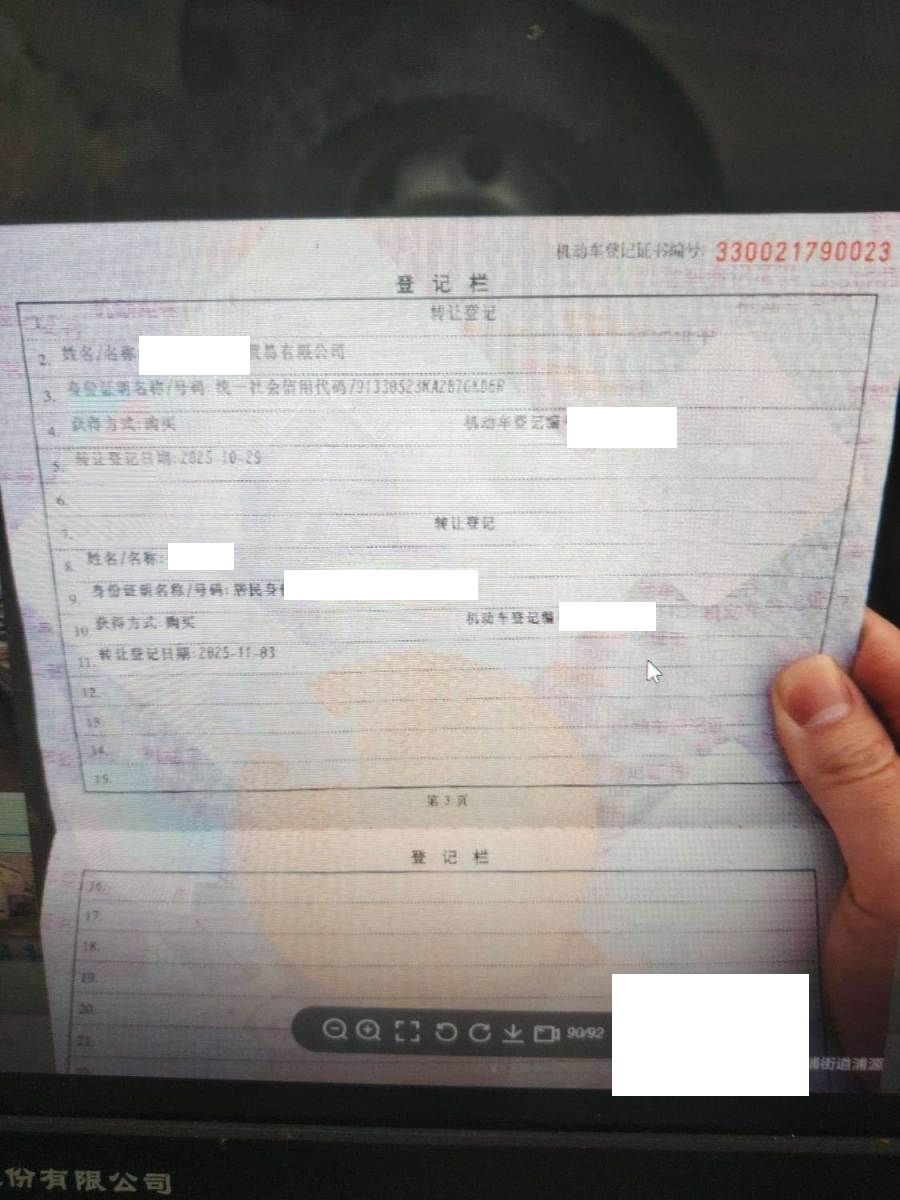 机动车登记证书编号: 330021790023
登 记 栏
1. 转让登记
2. 姓名/名称 贸易有限公司
3. 身份证明名称/号码 统一社会信用代码/
4. 获得方式:购买 机动车登记编
5. 转让登记日期:2025-10-29
6.
7. 转让登记
8. 姓名/名称:
9. 身份证明名称/号码: 居民身
10. 获得方式:购买 机动车登记编
11. 转让登记日期:2025-11-03
12.
13.
14.
15.
第 3 页
登 记 栏
16.
17.
18.
19.
20.
21.
90/92
浦街道浦
份有限公司